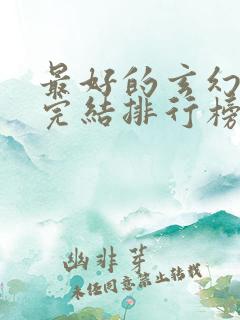 最好的玄幻
完结排行榜
幽非芽
未经同意禁止转载